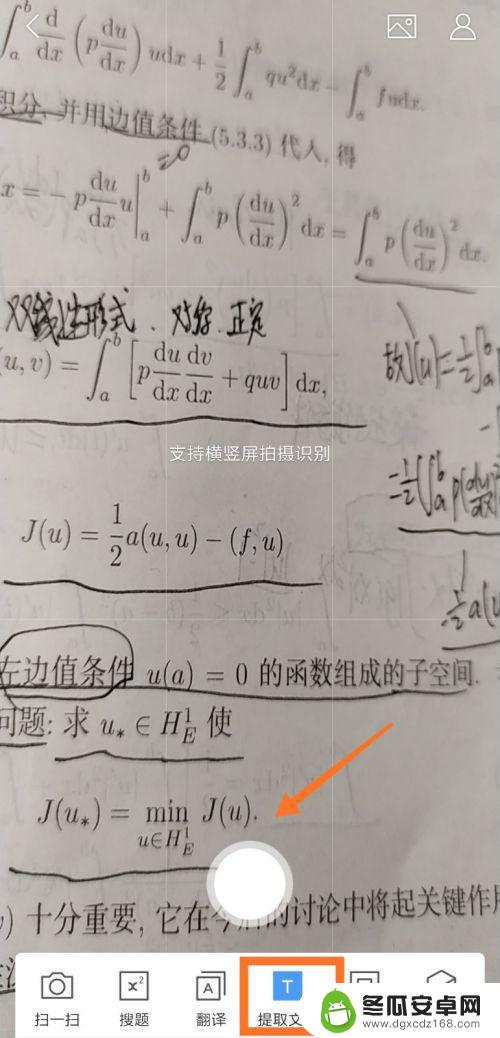 ∫_a^b d/dx (p du/dx) udx + 1/2 ∫_a^b qu²dx − ∫_a^b fudx.
积分, 并用边值条件 (5.3.3) 代人, 得
=0
x = − p du/dx u|_a^b + ∫_a^b p (du/dx)² dx = ∫_a^b p (du/dx)² dx.
双线性形式. 对称. 正定
(u, v) = ∫_a^b [p du/dx dv/dx + quv] dx,
故J(u)=½∫_a^b
支持横竖屏拍摄识别
J(u) = 1/2 a(u, u) − (f, u)
左边值条件 u(a) = 0 的函数组成的子空间.
问题: 求 u_* ∈ H_E^1 使
J(u_*) = min_{u∈H_E^1} J(u).
) 十分重要, 它在今后的讨论中将起关键作用
扫一扫 搜题 翻译 提取文
冬瓜安卓网
www.dgxcdz168.com